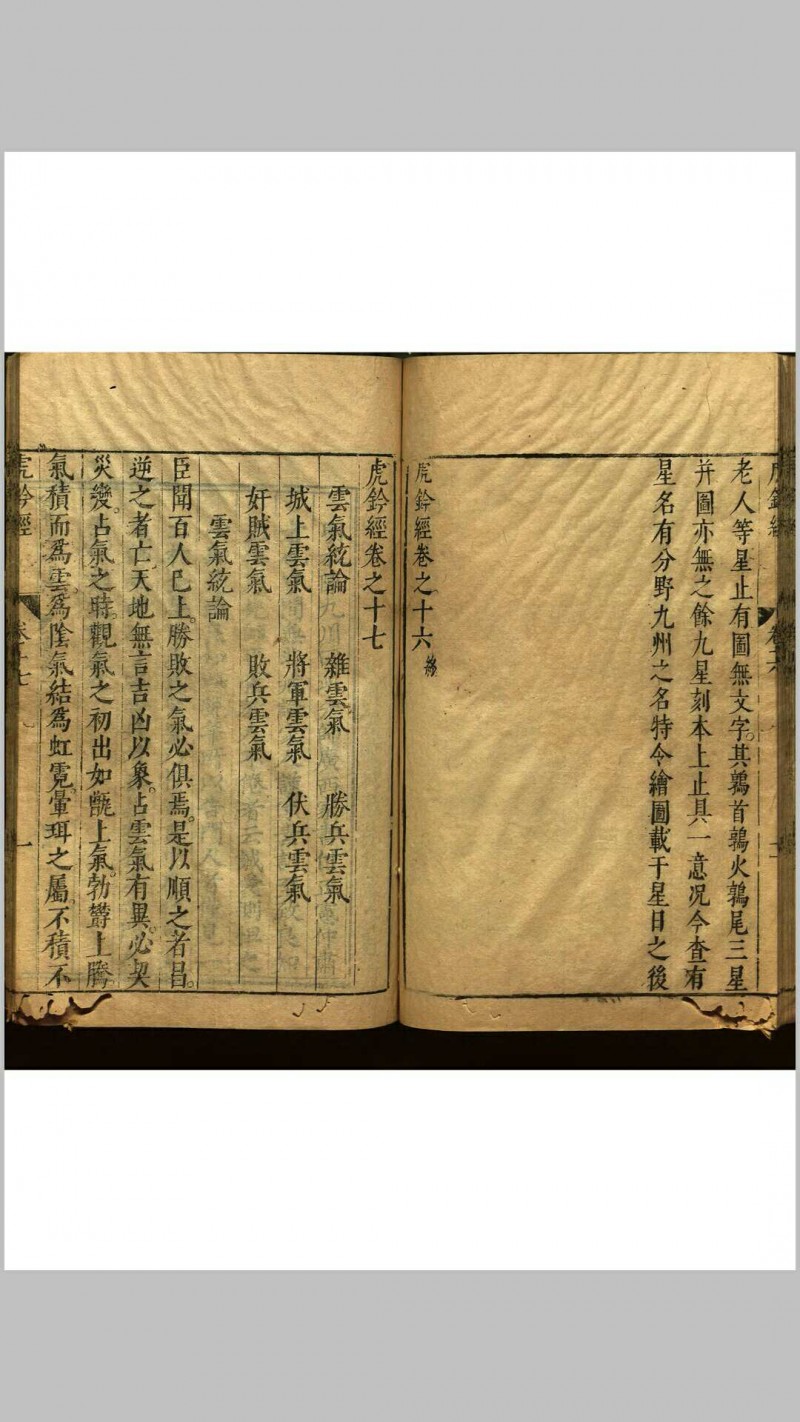 老人等星止有圖無文字其鶉首鶉火鶉尾三星
幷圖亦無之餘九星刻本上止具一意况今查有
星名有分野九州之名特今繪圖載于星日之後
虎鈐經卷之十六 終
虎鈐經卷之十七
雲氣統論 雜雲氣 勝兵雲氣
城上雲氣 將軍雲氣 伏兵雲氣
奸賊雲氣 敗兵雲氣
雲氣統論
臣聞百人已上。勝敗之氣必俱焉。是以順之者昌。
逆之者亡天地無言吉凶以象。占雲氣有異。必契
災變。占氣之時。觀氣之初出如甑上氣。勃欝上騰
氣積而爲雲。爲陰氣結爲虹霓。暈珥之屬。不積不
虎鈐經 卷十七 一